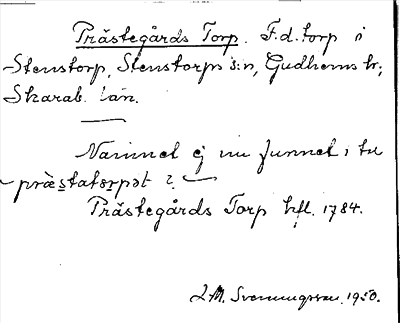 Prästegårds Torp. F.d. torp i
Stenstorp, Stenstorps s:n, Gudhems hr;
Skarab. län.
Namnet ej nu funnet i
præstatɔrpət ?
Prästegårds Torp hfl. 1784.
1950.